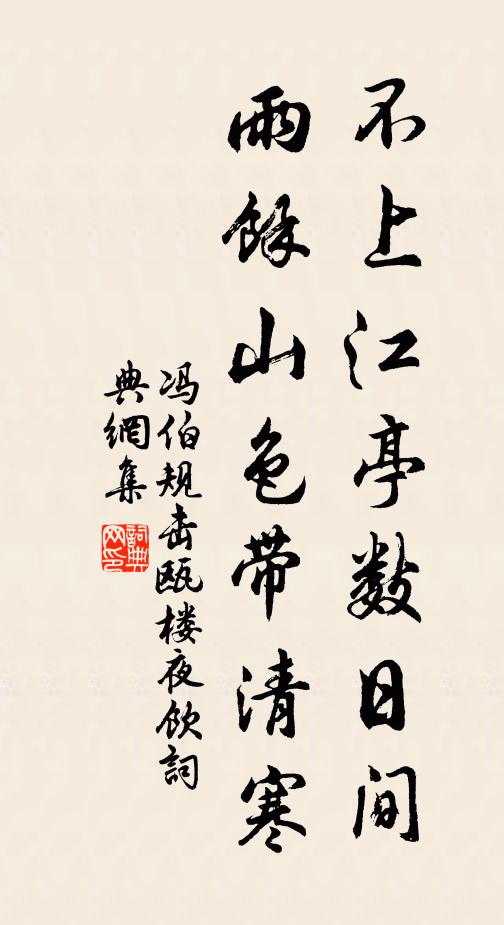 不上江亭数日间
雨馀山色带清寒
冯伯规击瓯楼夜饮词
典網集
詞典網印